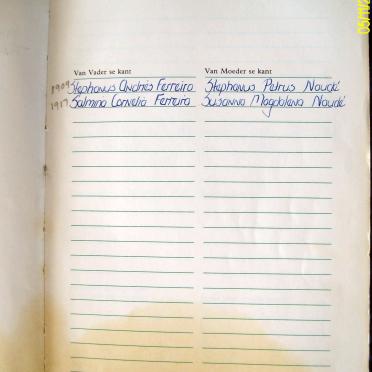 Van Vader se kant
Van Moeder se kant
1909 Stephanus Andries Ferreira
Stephanus Petrus Naudé
1917 Salmina Cornelia Ferreira
Susanna Magdalena Naudé